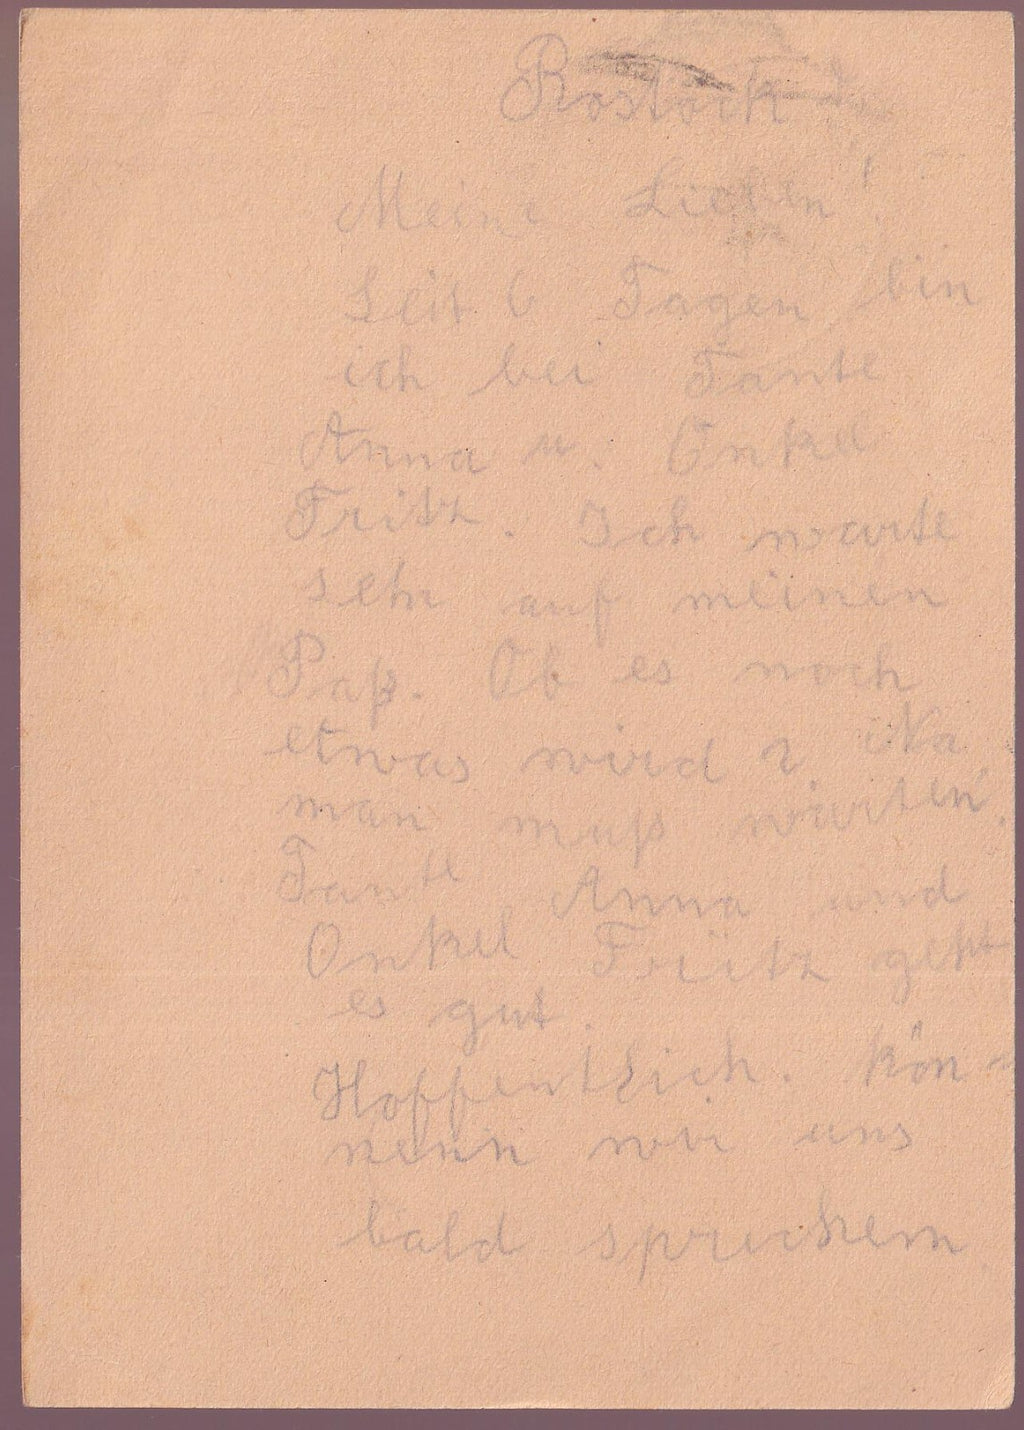 Rostock
Meine Lieben!
Seit 6 Tagen bin
ich bei Tante
Anna u. Onkel
Fritz. Ich warte
sehr auf meinen
Paß. Ob es noch
etwas wird? Na
man muß warten.
Tante Anna und
Onkel Fritz geht
es gut.
Hoffentlich. kön=
nenn wir uns
bald sprechem.